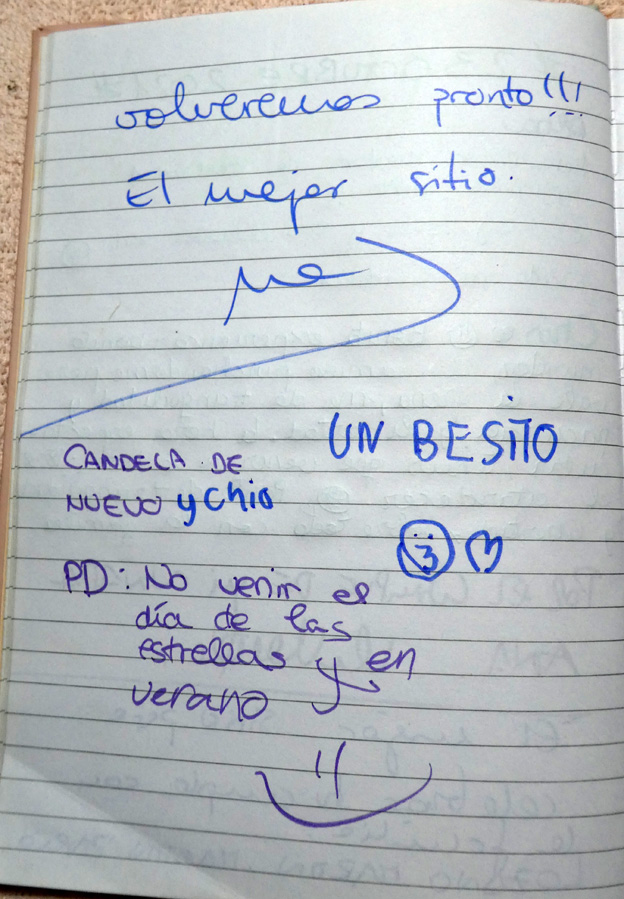 volveremos pronto!!!
El mejor sitio.
UN BESITO
CANDELA DE
NUEVO y Chio
PD: No venir el
día de las
estrellas y en
verano